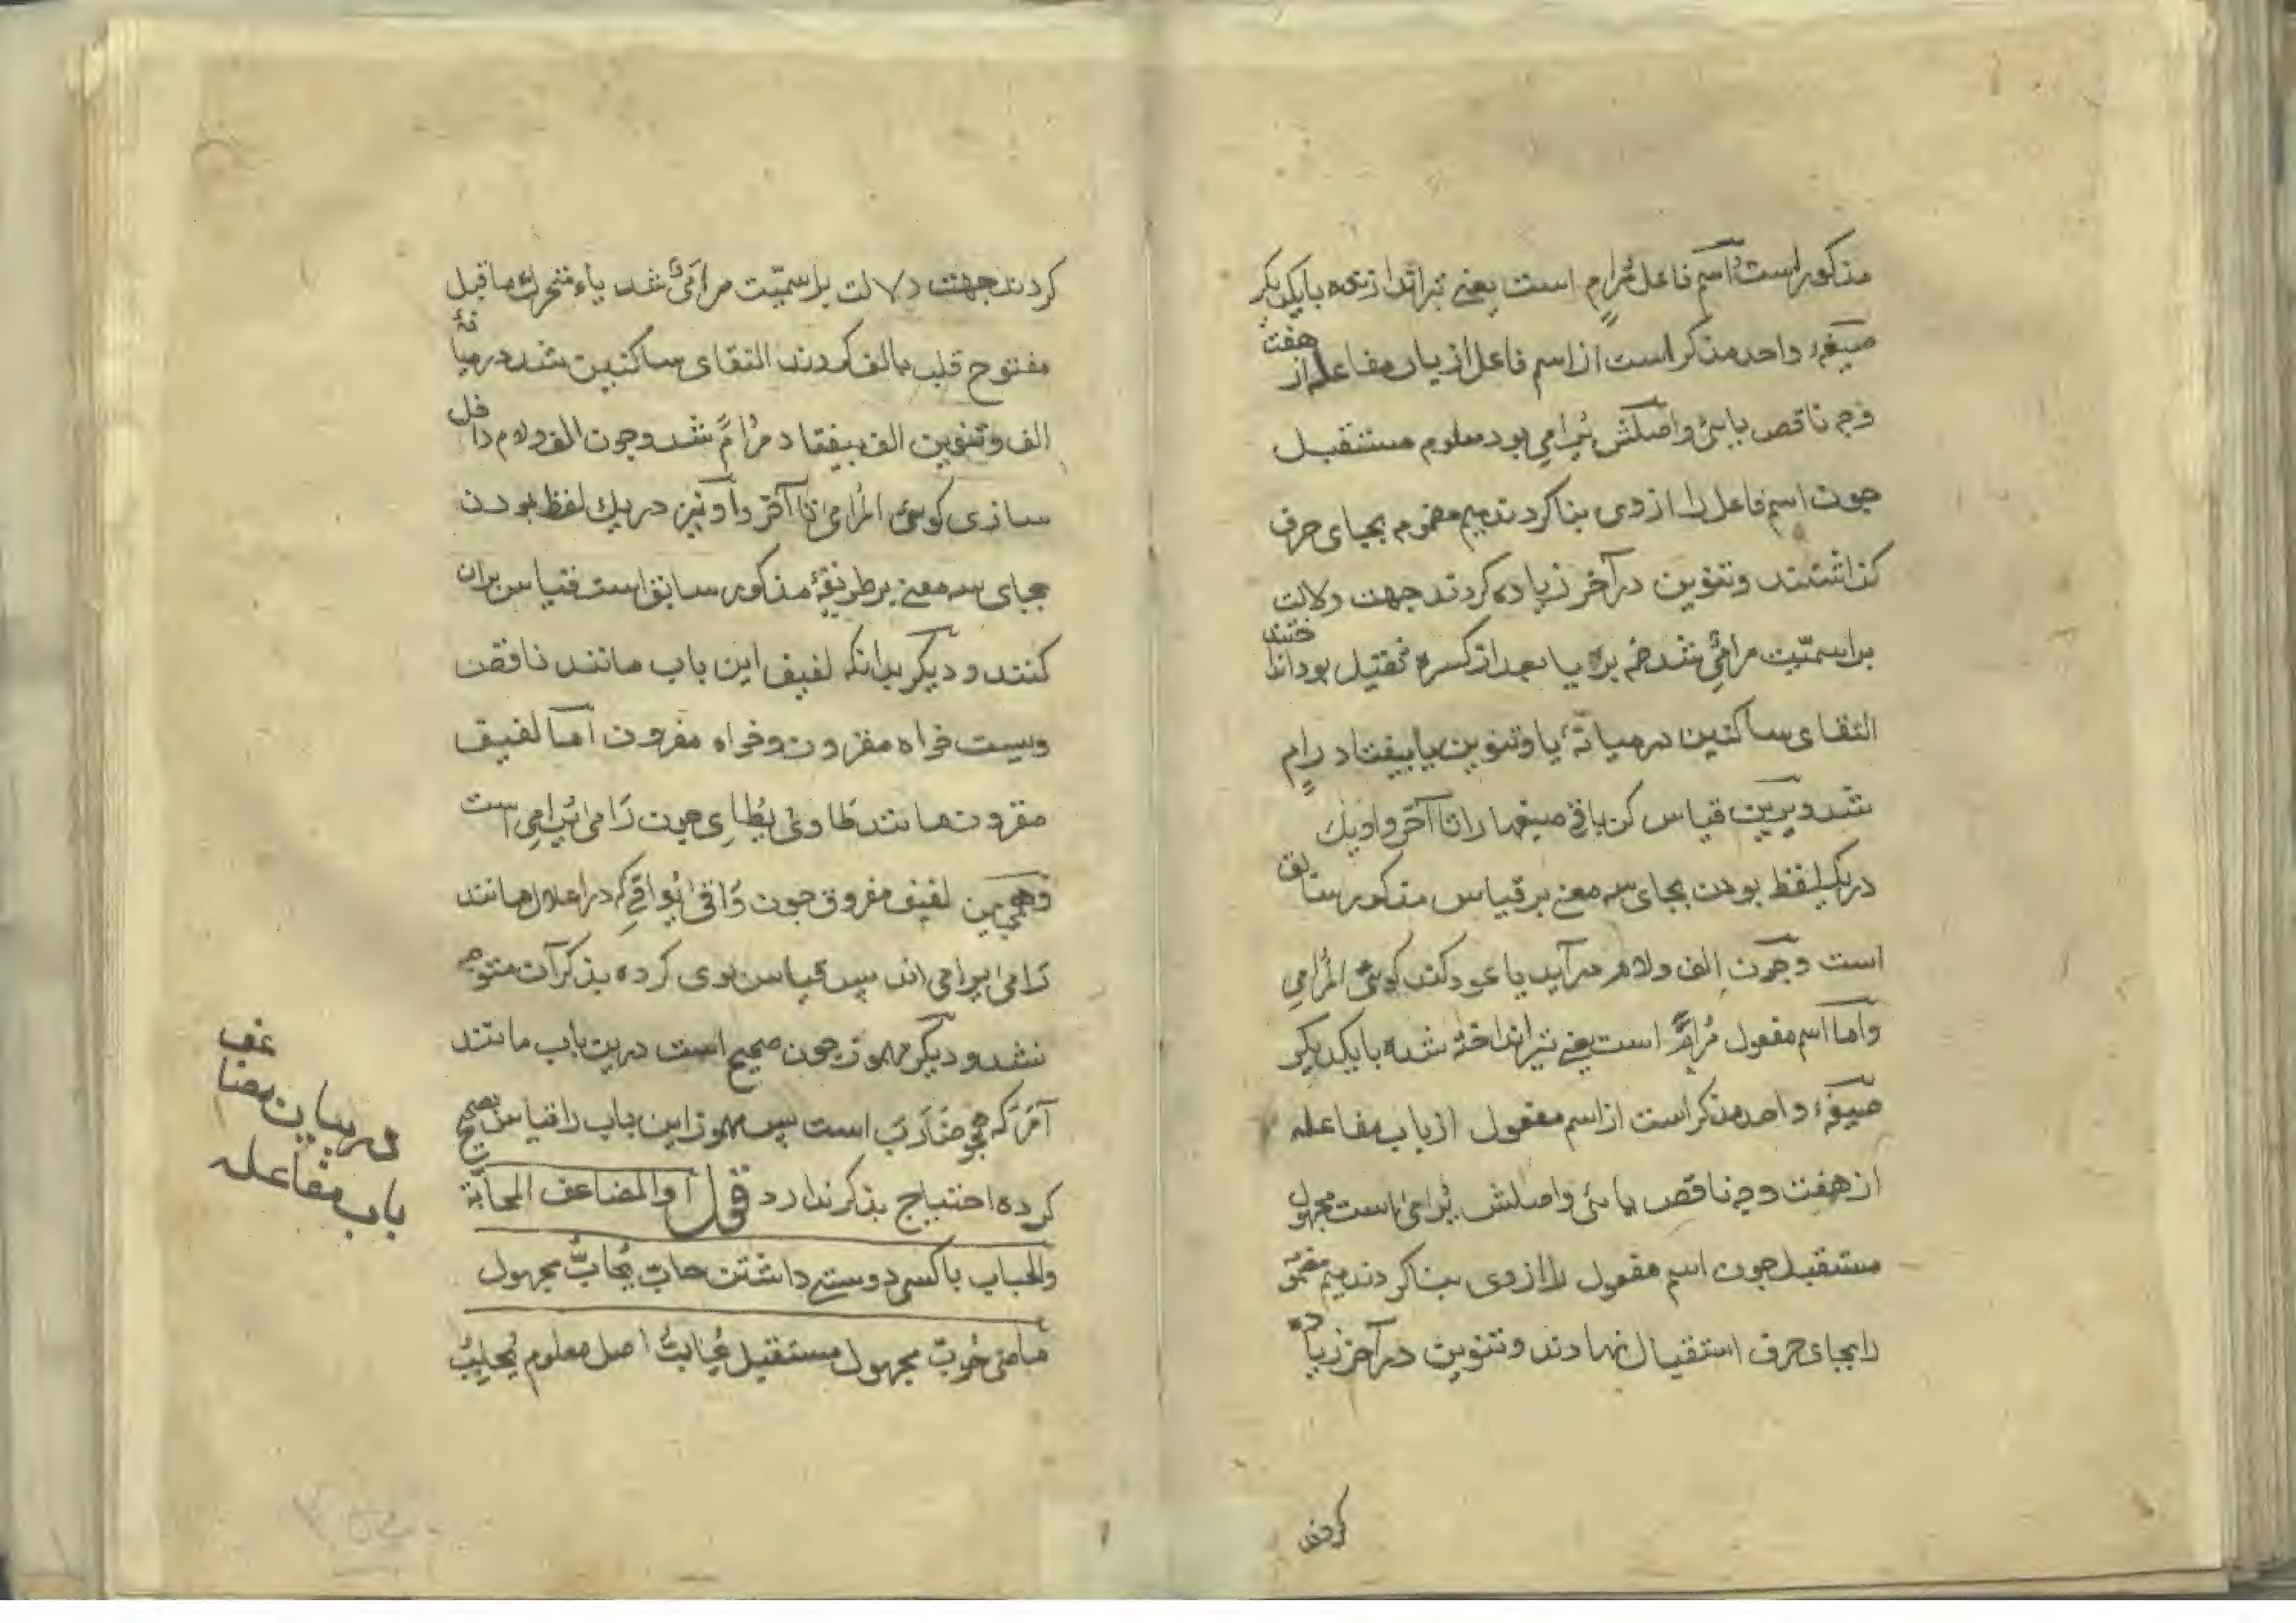 مذکور است اسم فاعل مُرامٍ است یعنی تیراندازنده با یکدیکر
صیغهٔ واحد مذکر است از اسم فاعل از باب مفاعله از هفت
وجه ناقص یائی و اصلش یُرامِی بود معلوم مستقبل
جون اسم فاعل را از وی بنا کردند میم مضموم بجای حرف
کذاشتند و تنوین در آخر زیاده کردند جهت دلالت
بر اسمیّت مرامِیٌ شد ضمه بر یا بعد از کسره ثقیل بود انداختند
التقای ساکنین در میانهٔ یا و تنوین یا بیفتاد رامٍ
شد و برین قیاس کن باقی صیغها را تا آخر و او نیز
در یک لفظ بودن بجای سه معنی بر قیاس مذکور سابق
است و جون الف و لام در آید یا عود کند کوئی المُرامِی
و اما اسم مفعول مُرامًی است یعنی تیر انداخته شده با یکدیکر
صیغهٔ واحد مذکر است از اسم مفعول از باب مفاعله
از هفت وجه ناقص یائی و اصلش یُرامَی است مجهول
مستقبل جون اسم مفعول را از وی بنا کردند میم مضموم
را بجای حرف استقبال نهادند و تنوین در آخر زیاده
کردند
کردند جهت دلالت بر اسمیّت مرامَیٌ شد یاء متحرک ماقبل
مفتوح قلب بالف کردند التقای ساکنین شد در میانهٔ
الف و تنوین الف بیفتاد مُرامً شد و جون الف و لام داخل
سازی کوئی المُرامی تا آخر و او نیز در یک لفظ بودن
بجای سه معنی بر طریقهٔ مذکور سابق است قیاس بران
کنند و دیکر بدانکه لفیف این باب مانند ناقص
ویست خواه مقرون و خواه مفرون اما لفیف
مقرون مانند طاوی یُطاوِی جون رامی یُرامِی است
و همچنین لفیف مفروق جون واقی یُواقِی که در اعلال مانند
رامی یرامی اند پس قیاس بوی کرده بذکر آن متوجه
نشد و دیکر مهموز جون صحیح است درین باب مانند
آمَرَ که همچو ضارَبَ است پس مهموز این باب را قیاس بصحیح
کرده احتیاج بذکر ندارد قوله والمضاعف المحابّة
والحباب با کسی دوستی داشتن حابّ یُحابّ مجهول
ماضی حُوبّ مجهول مستقبل یُحابّ اصل معلوم یُحابِبُ
در بیان مضاعف
باب مفاعله